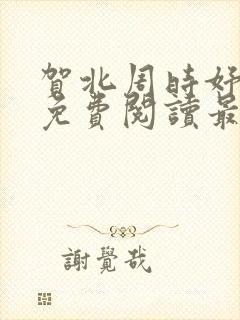 賀北周時好
免費閱讀最
謝覺哉